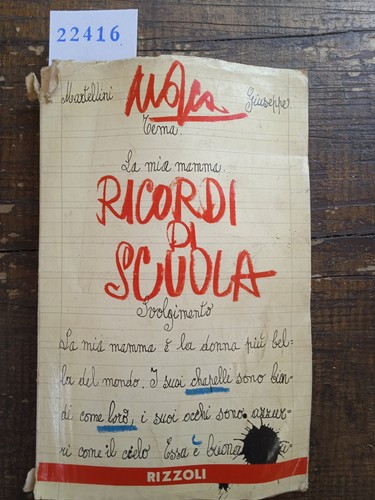 22416
Martellini Mosca Giuseppe
Tema.
La mia mamma.
RICORDI
DI
SCUOLA
Svolgimento
La mia mamma è la donna più bel-
la del mondo. I suoi chapelli sono bion-
di come loro, i suoi occhi sono azzur-
ri come il cielo Essa è buona
RIZZOLI